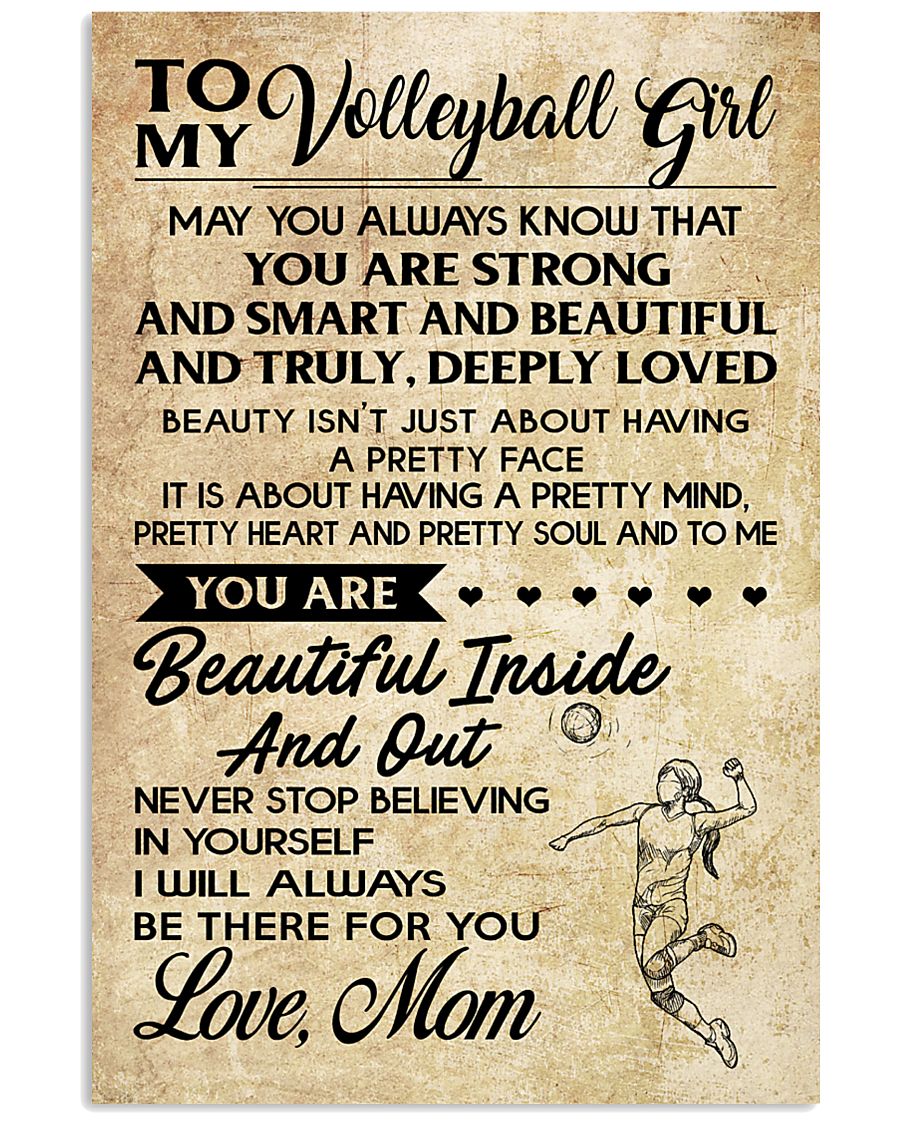 TO MY Volleyball Girl
MAY YOU ALWAYS KNOW THAT
YOU ARE STRONG
AND SMART AND BEAUTIFUL
AND TRULY, DEEPLY LOVED
BEAUTY ISN'T JUST ABOUT HAVING
A PRETTY FACE
IT IS ABOUT HAVING A PRETTY MIND,
PRETTY HEART AND PRETTY SOUL AND TO ME
YOU ARE
Beautiful Inside
And Out
NEVER STOP BELIEVING
IN YOURSELF
I WILL ALWAYS
BE THERE FOR YOU
Love, Mom